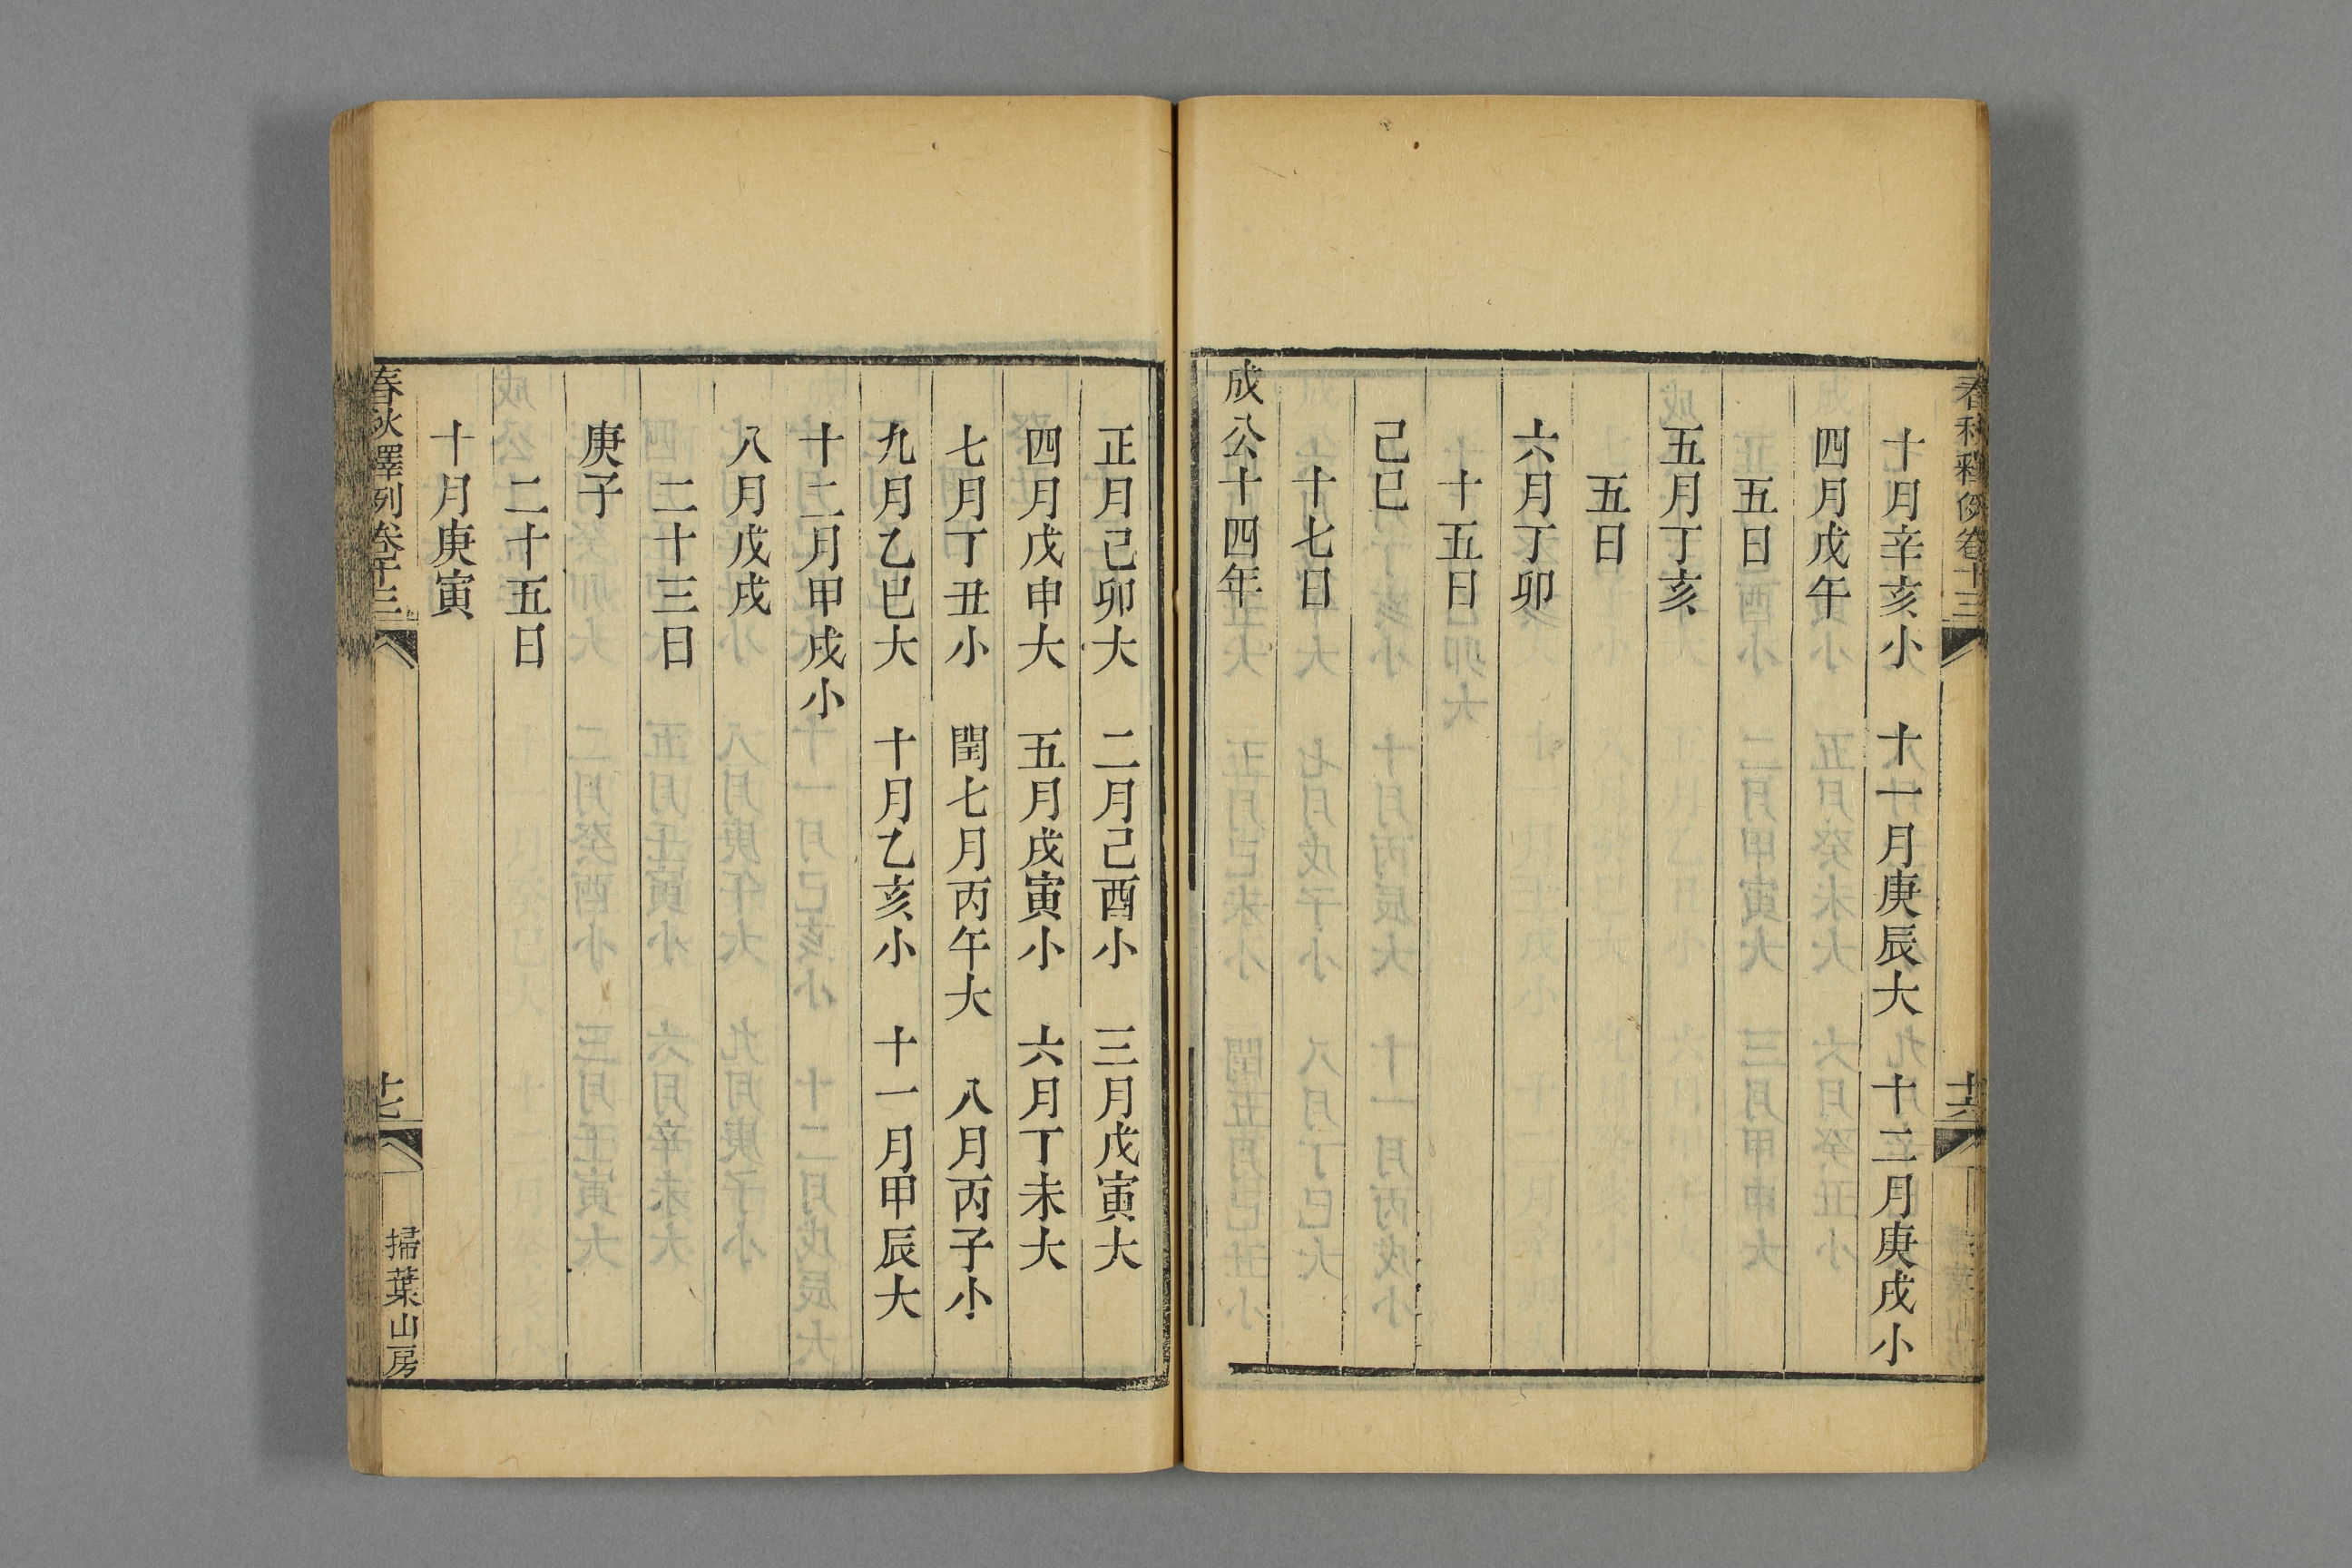 春秋釋例卷十三
十六
十月辛亥小　十一月庚辰大　十二月庚戌小
四月戊午
五日
五月丁亥
五日
六月丁卯
十五日
己巳
十七日
成公十四年
正月己卯大　二月己酉小　三月戊寅大
四月戊申大　五月戊寅小　六月丁未大
七月丁丑小　閏七月丙午大　八月丙子小
九月乙巳大　十月乙亥小　十一月甲辰大
十二月甲戌小
八月戊戌
二十三日
庚子
二十五日
十月庚寅
春秋釋例卷十三
十七
掃葉山房